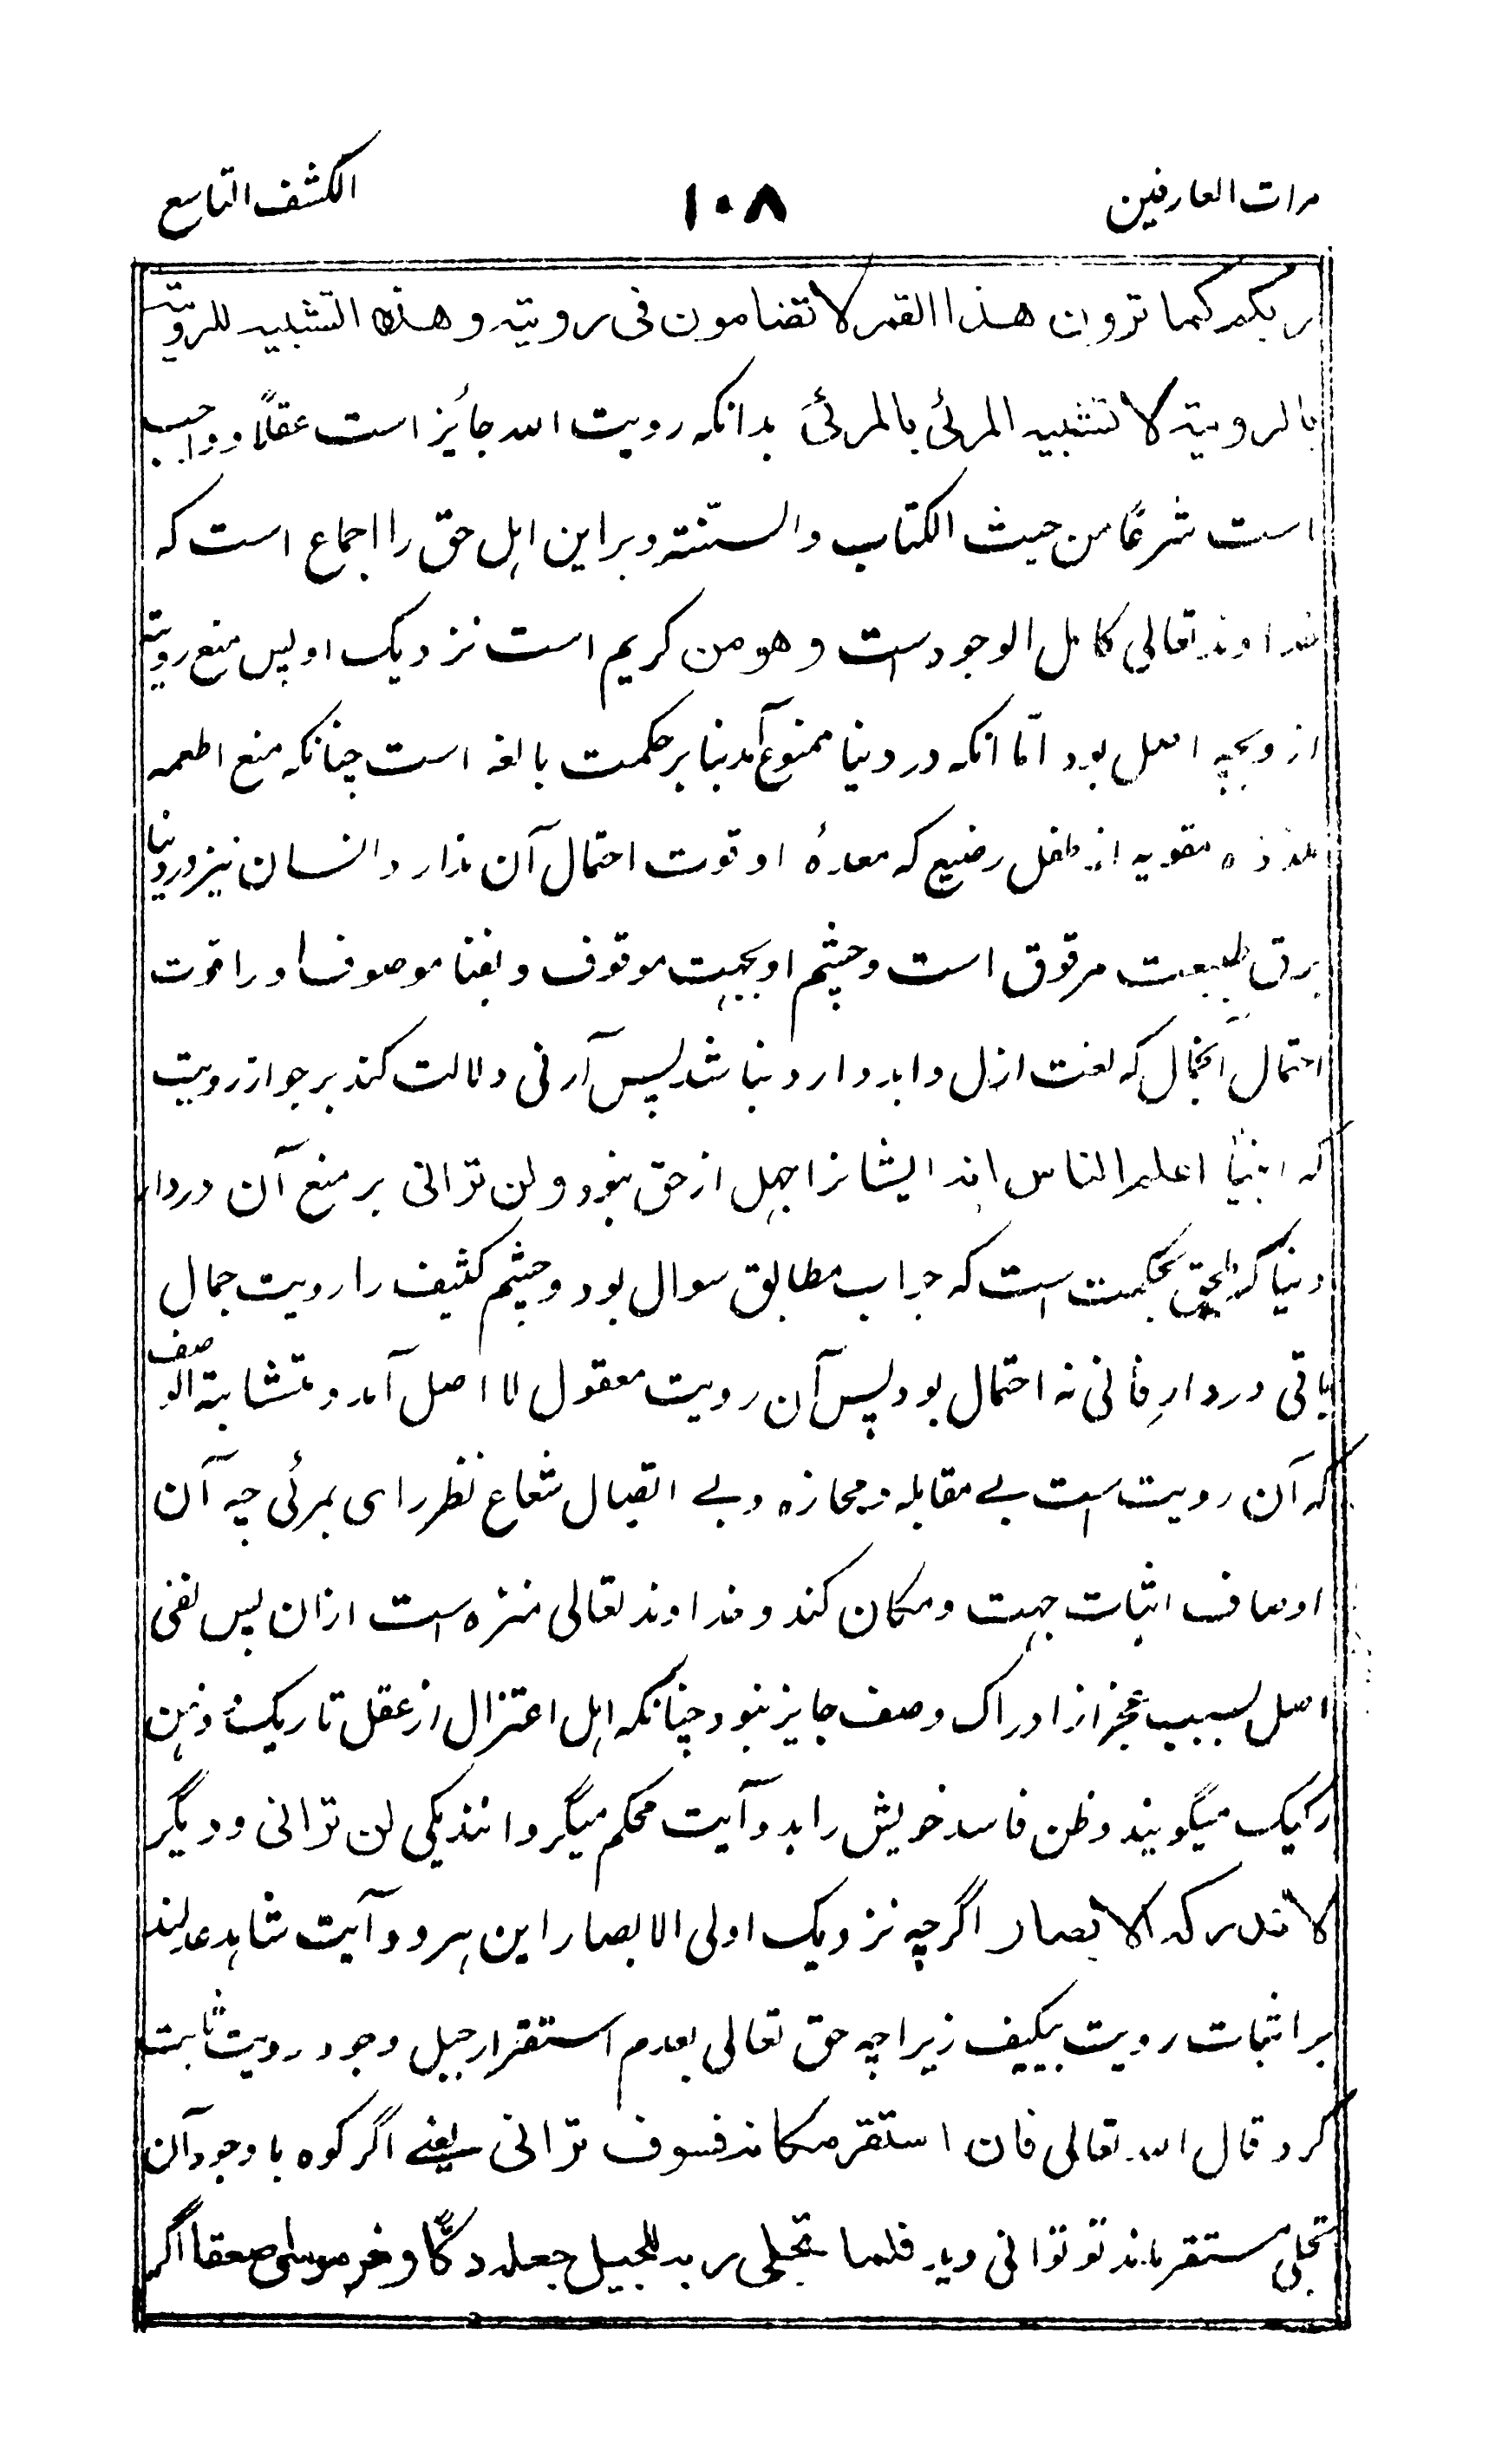 مرات العارفین ۱۰۸ الکشف التاسع
ربکم کما ترون هذا القمر لا تضامون فی رویته وهذه التشبیه للرویة
بالرویة لا تشبیه المرئی بالمرئی بدانکه رویت الله جائز است عقلاً و واجب
است شرعًا من حیث الکتاب والسنّته وبراین اہل حق را اجماع است که
خداوند تعالی کامل الوجودست وهو من کریم است نزدیک او پس منع رویته
از وجهه اصل بود امّا انکه در دنیا ممنوع آمد بنابر حکمت بالغه است چنانکه منع اطعمه
ملذذه مقویه از طفل رضیع که معدۂ او قوت احتمال آن ندارد انسان نیز در دنیا
برق طبیعت مرقوق است وچشم او بجهت موقوف وبفنا موصوف او را قوت
احتمال آنجمال که لغت ازل وابد دارد نباشد پس آرنی دلالت کند بر جواز رویت
که انبیّا اعلم الناس اند ایشانرا جہل از حق نبود ولن ترانی بر منع آن در دار
دنیا که بحکمت است که جواب مطابق سوال بود وچشم کثیف را رویت جمال
باقی در دارِ فانی نه احتمال بود پس آن رویت معقول الاصل آمد و متشابة الوصف
که آن رویت است بے مقابله ومحازه وبے اتصال شعاع نظر رای بمرئی چه آن
اوصاف اثبات جهت ومکان کند وخداوند تعالی منزه است ازان پس نفی
اصل بسبب عجز از ادراک وصف جایز نبود چنانکه اہل اعتزال از عقل تاریک و ذہن
رکیک میگویند وظن فاسد خویش را بدو آیت محکم میگردانند یکی لن ترانی ودیگر
لا تدرکه الابصار اگرچه نزدیک اولی الابصار این ہر دو آیت شاہد عدلند
بر اثبات رویت بیکیف زیراچه حق تعالی بعدم استقرار جبل وجود رویت ثابت
کرد قال الله تعالی فان استقر مکانه فسوف ترانی یعنے اگر کوه با وجود آن
تجلی مستقر ماند تو توانی دید فلما تجلی ربه للجبل جعله دکًّا وخر موسٰی صعقا اگر